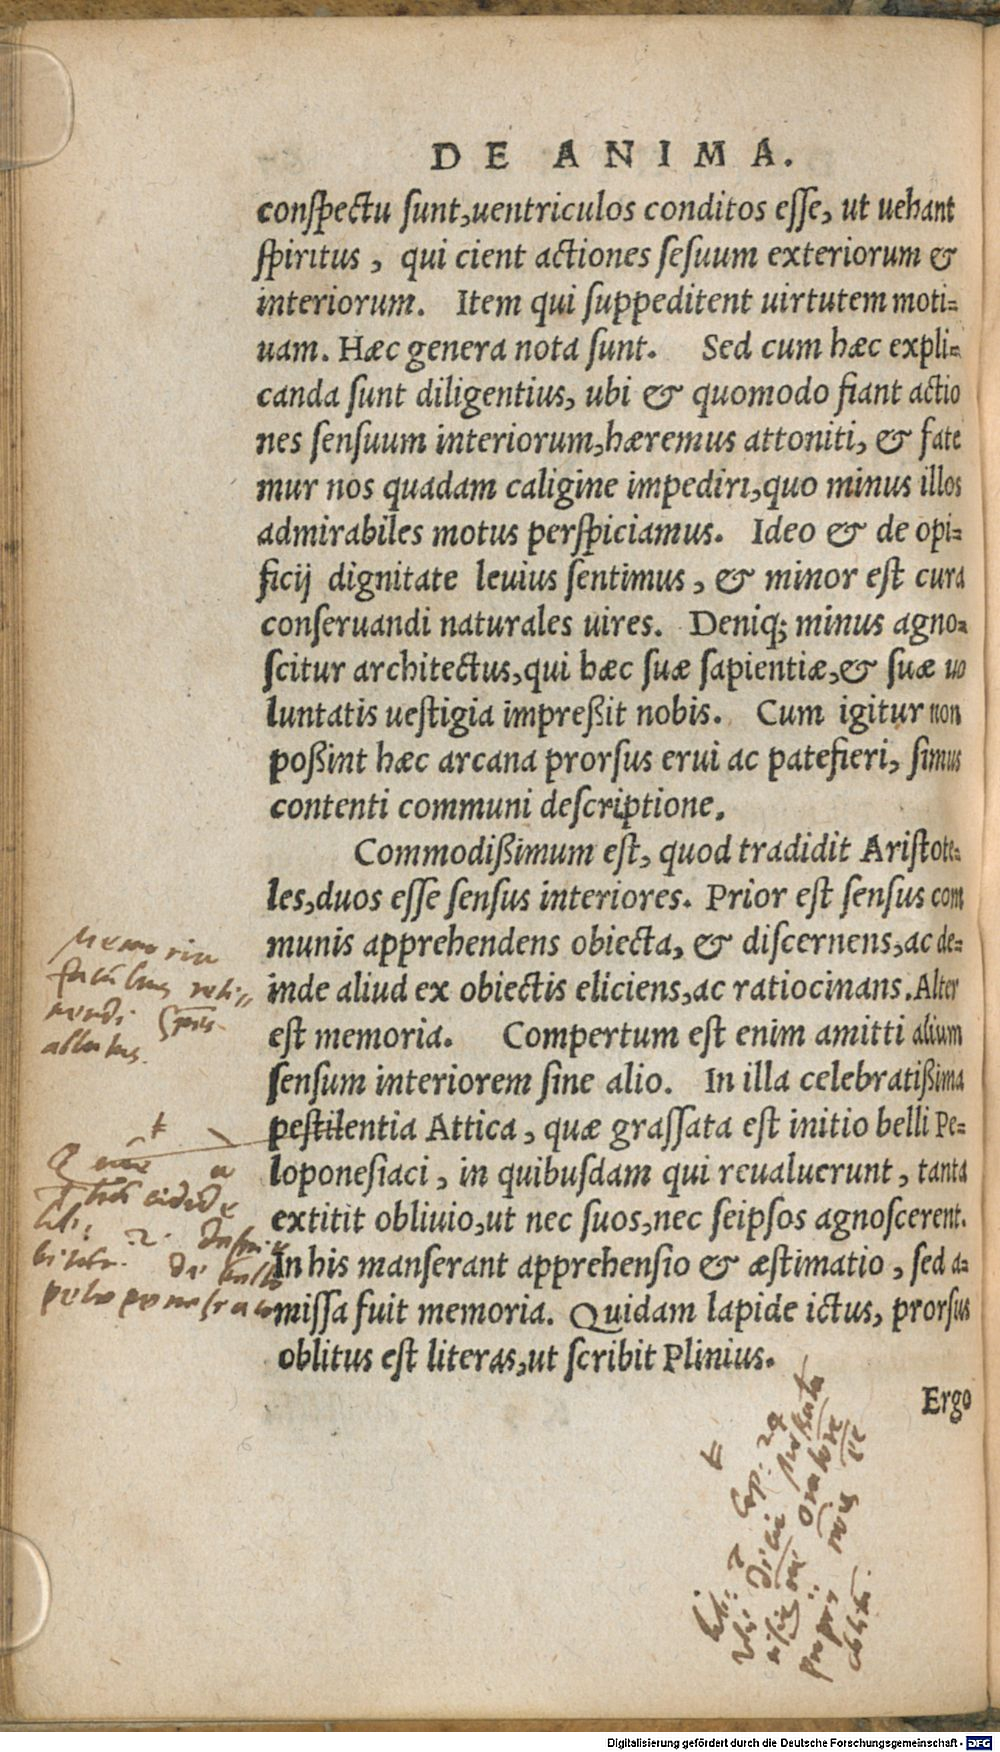 DE ANIMA.
conſpectu ſunt,uentriculos conditos eſſe, ut uehant
ſpiritus, qui cient actiones ſeſuum exteriorum &
interiorum. Item qui ſuppeditent uirtutem moti=
uam. Hæc genera nota ſunt. Sed cum hæc expli=
canda ſunt diligentius, ubi & quomodo fiant actio
nes ſenſuum interiorum,hæremus attoniti, & fate
mur nos quadam caligine impediri,quo minus illos
admirabiles motus perſpiciamus. Ideo & de opi=
ficij dignitate leuius ſentimus, & minor eſt cura
conſeruandi naturales uires. Deniq; minus agno=
ſcitur architectus,qui hæc ſuæ ſapientiæ,& ſuæ uo
luntatis ueſtigia impreßit nobis. Cum igitur non
poßint hæc arcana prorſus erui ac patefieri, ſimus
contenti communi deſcriptione.
Commodißimum eſt, quod tradidit Ariſtote=
les,duos eſſe ſenſus interiores. Prior eſt ſenſus com
munis apprehendens obiecta, & diſcernens,ac de=
inde aliud ex obiectis eliciens,ac ratiocinans. Alter
eſt memoria. Compertum eſt enim amitti alium
ſenſum interiorem ſine alio. In illa celebratißima
peſtilentia Attica, quæ graſſata eſt initio belli Pe=
loponeſiaci, in quibuſdam qui reualuerunt, tanta
extitit obliuio,ut nec ſuos,nec ſeipſos agnoſcerent.
In his manſerant apprehenſio & æſtimatio, ſed a=
miſſa fuit memoria. Quidam lapide ictus, prorſus
oblitus eſt literas,ut ſcribit Plinius.
Ergo
Memoria
Cap: 24
Digitalisierung gefördert durch die Deutsche Forschungsgemeinschaft - DFG